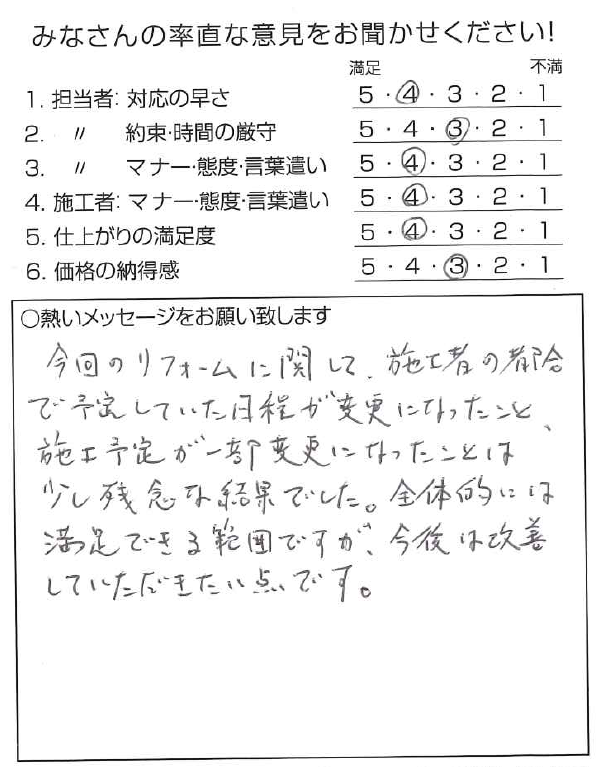 みなさんの率直な意見をお聞かせください!
満足 不満
1. 担当者: 対応の早さ 5・4・3・2・1
2. 〃 約束・時間の厳守 5・4・3・2・1
3. 〃 マナー・態度・言葉遣い 5・4・3・2・1
4. 施工者: マナー・態度・言葉遣い 5・4・3・2・1
5. 仕上がりの満足度 5・4・3・2・1
6. 価格の納得感 5・4・3・2・1
○熱いメッセージをお願い致します
今回のリフォームに関して、施工者の都合
で予定していた日程が変更になったこと、
施工予定が一部変更になったことは
少し残念な結果でした。全体的には
満足できる範囲ですが、今後は改善
していただきたい点です。